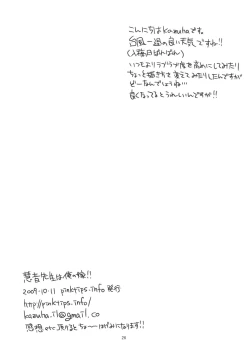 こんにちはkazuhaです。
台風一過の良い天気ですね!!
(入稿日ばればれ)
いつもよりラブラブ度を高めにしてみたり
ちょっと描き方を変えてみたりしたんですが
どーなんでしょうね…
良くなってるとうれしいんですが!!
慧音先生は俺の嫁!!
2009.10.11 pinktips.info 発行
http://pinktips.info/
kazuha.il@gmail.co
感想etc頂けるとちょーはげみになります!!